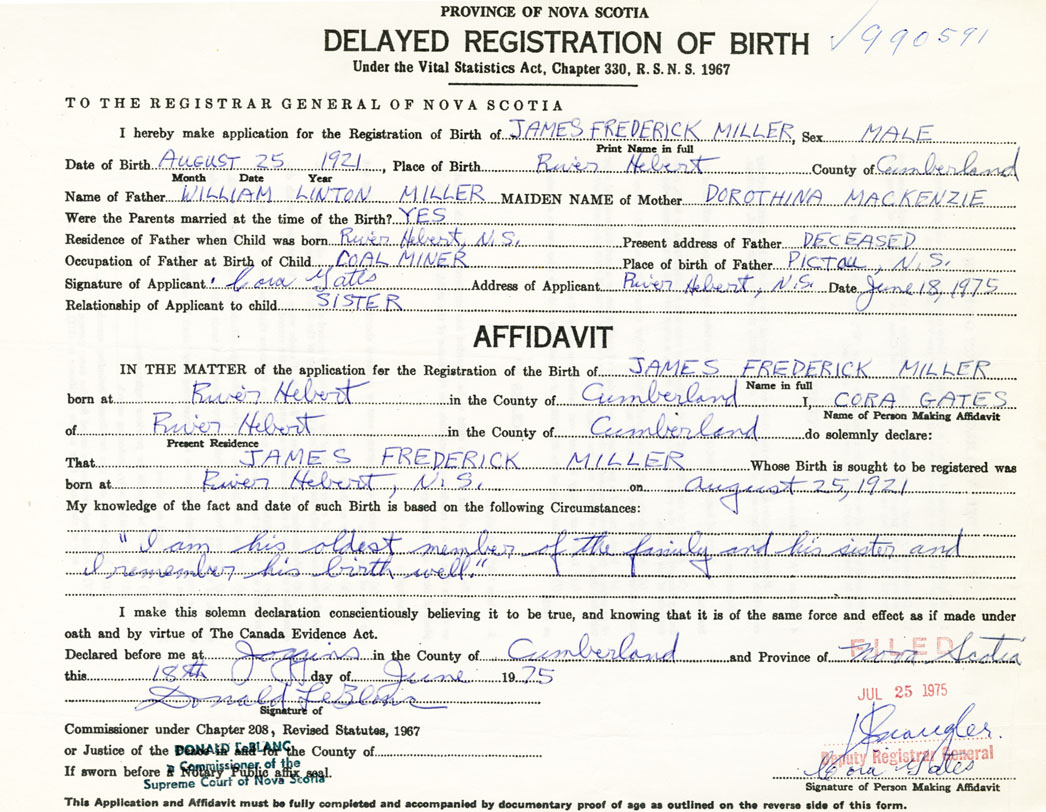 PROVINCE OF NOVA SCOTIA
DELAYED REGISTRATION OF BIRTH ✓990591
Under the Vital Statistics Act, Chapter 330, R. S. N. S. 1967
TO THE REGISTRAR GENERAL OF NOVA SCOTIA
I hereby make application for the Registration of Birth of JAMES FREDERICK MILLER, Sex MALE
Print Name in full
Date of Birth AUGUST 25 1921, Place of Birth River Hebert County of Cumberland
Month Date Year
Name of Father WILLIAM LINTON MILLER MAIDEN NAME of Mother DOROTHINA MACKENZIE
Were the Parents married at the time of the Birth? YES
Residence of Father when Child was born River Hebert, N.S. Present address of Father DECEASED
Occupation of Father at Birth of Child COAL MINER Place of birth of Father PICTOU, N.S.
Signature of Applicant Cora Gates Address of Applicant River Hebert, N.S. Date June 18, 1975
Relationship of Applicant to child SISTER
AFFIDAVIT
IN THE MATTER of the application for the Registration of the Birth of JAMES FREDERICK MILLER
Name in full
born at River Hebert in the County of Cumberland I, CORA GATES
Name of Person Making Affidavit
of River Hebert in the County of Cumberland do solemnly declare:
Present Residence
That JAMES FREDERICK MILLER Whose Birth is sought to be registered was
born at River Hebert, N.S. on August 25, 1921
My knowledge of the fact and date of such Birth is based on the following Circumstances:
"I am his oldest member of the family and his sister and
I remember his birth well."
I make this solemn declaration conscientiously believing it to be true, and knowing that it is of the same force and effect as if made under
oath and by virtue of The Canada Evidence Act.
Declared before me at Joggins in the County of Cumberland and Province of Nova Scotia
FILED
this 18th day of June 1975
JUL 25 1975
Donald LeBlanc
Signature of
Commissioner under Chapter 208, Revised Statutes, 1967
or Justice of the Peace in and for the County of
DONALD LeBLANC
A Commissioner of the
Supreme Court of Nova Scotia
If sworn before a Notary Public affix seal.
Deputy Registrar General
Cora Gates
Signature of Person Making Affidavit
This Application and Affidavit must be fully completed and accompanied by documentary proof of age as outlined on the reverse side of this form.